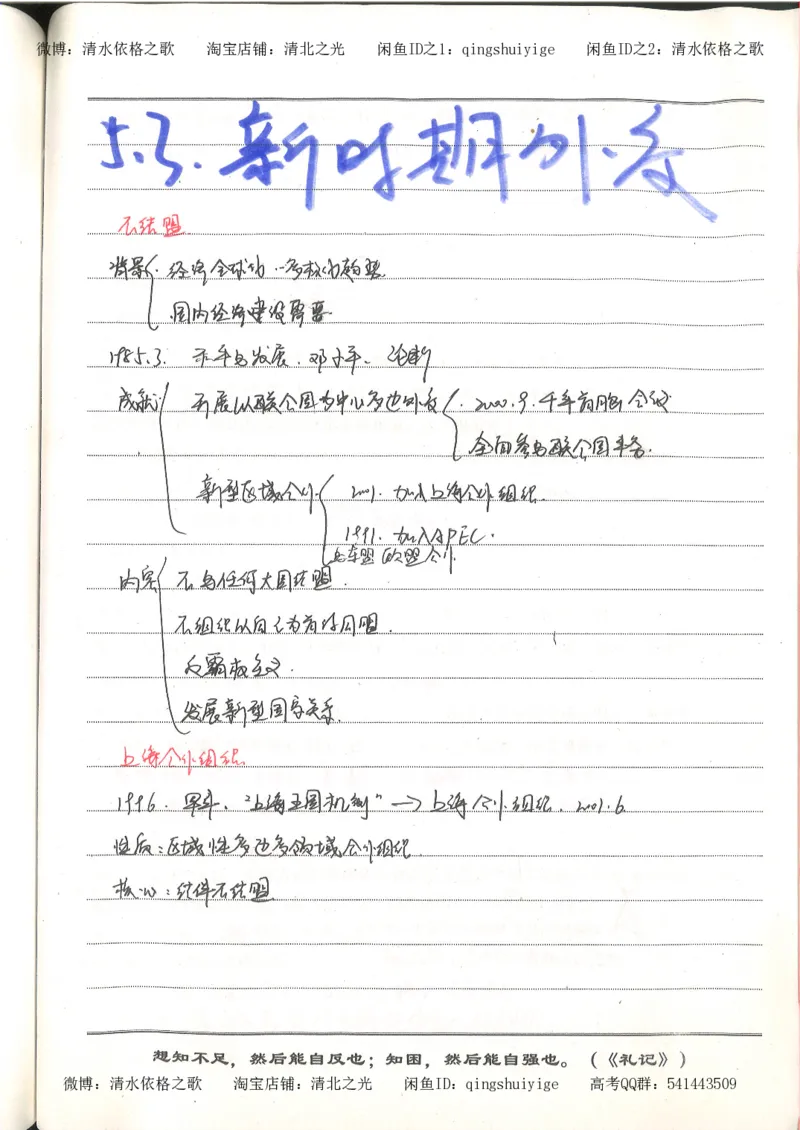 微博：清水依格之歌 淘宝店铺：清北之光 闲鱼ID之1：qingshuiyige 闲鱼ID之2：清水依格之歌
5.3.新时期外交
不结盟
背景 经济全球化、多极化趋势
国内经济建设需要
1985.3. 和平与发展.邓小平、论断
成就 开展以联合国为中心多边外交 2000.9.千年首脑会议
全面参与联合国事务.
新型区域合作 2001.加入上海合作组织.
1991.加入APEC.
与东盟 欧盟合作
内容 不与任何大国结盟.
不组织以自己为首的同盟.
反霸权主义.
发展新型国家关系.
上海合作组织
1996.军事."上海五国机制"→上海合作组织.2001.6
性质：区域性多边多领域合作组织
核心：结伴不结盟
想知不足，然后能自反也；知困，然后能自强也。（《礼记》）
微博：清水依格之歌 淘宝店铺：清北之光 闲鱼ID：qingshuiyige 高考QQ群：541443509